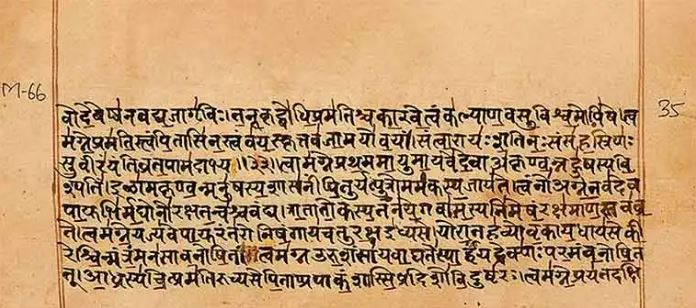 M-66
35
वोदेवेष्वनवद्यजागृविः।तनूकृद्बोधिप्रमतिश्चकारवेत्वंकल्याणवसुविश्वमोपिषे।त्व
मग्नेप्रमतिस्त्वंपितासिनस्त्वंवयस्कृत्तवजामयोवयं।संत्वारायःशतिनःसंसहस्रिणः
सुवीरंयंतिव्रतपामदाभ्य॥३३॥त्वामग्नेप्रथममायुमायवेदेवाअकृण्वन्नहुषस्यवि
श्पतिं।इळामकृण्वन्मनुषस्यशासनीं।पितुर्यत्पुत्रोममकस्यजायते।त्वंनोअग्नेतवदेव
पायुभिर्मघोनोरक्षतन्वश्चवंद्य।त्रातातोकस्यतनयेगवामस्यनिमेषंरक्षमाणस्तवव्र
ते।त्वमग्नेयज्यवेपायुरंतरोनिषंगायचतुरक्षइध्यसे।योरातहव्योवृकायधायसेकी
रेश्चिन्मंत्रंमनसावनोषितं॥त्वमग्नउरुशंसायवाघतेस्पार्हंयद्रेक्णःपरमंवनोषित
त्।आध्रस्यचित्प्रमतिरुच्यसेपिताप्रपाकंशास्सिप्रदिशोविदुष्टरः।त्वमग्नेप्रयतदक्षि